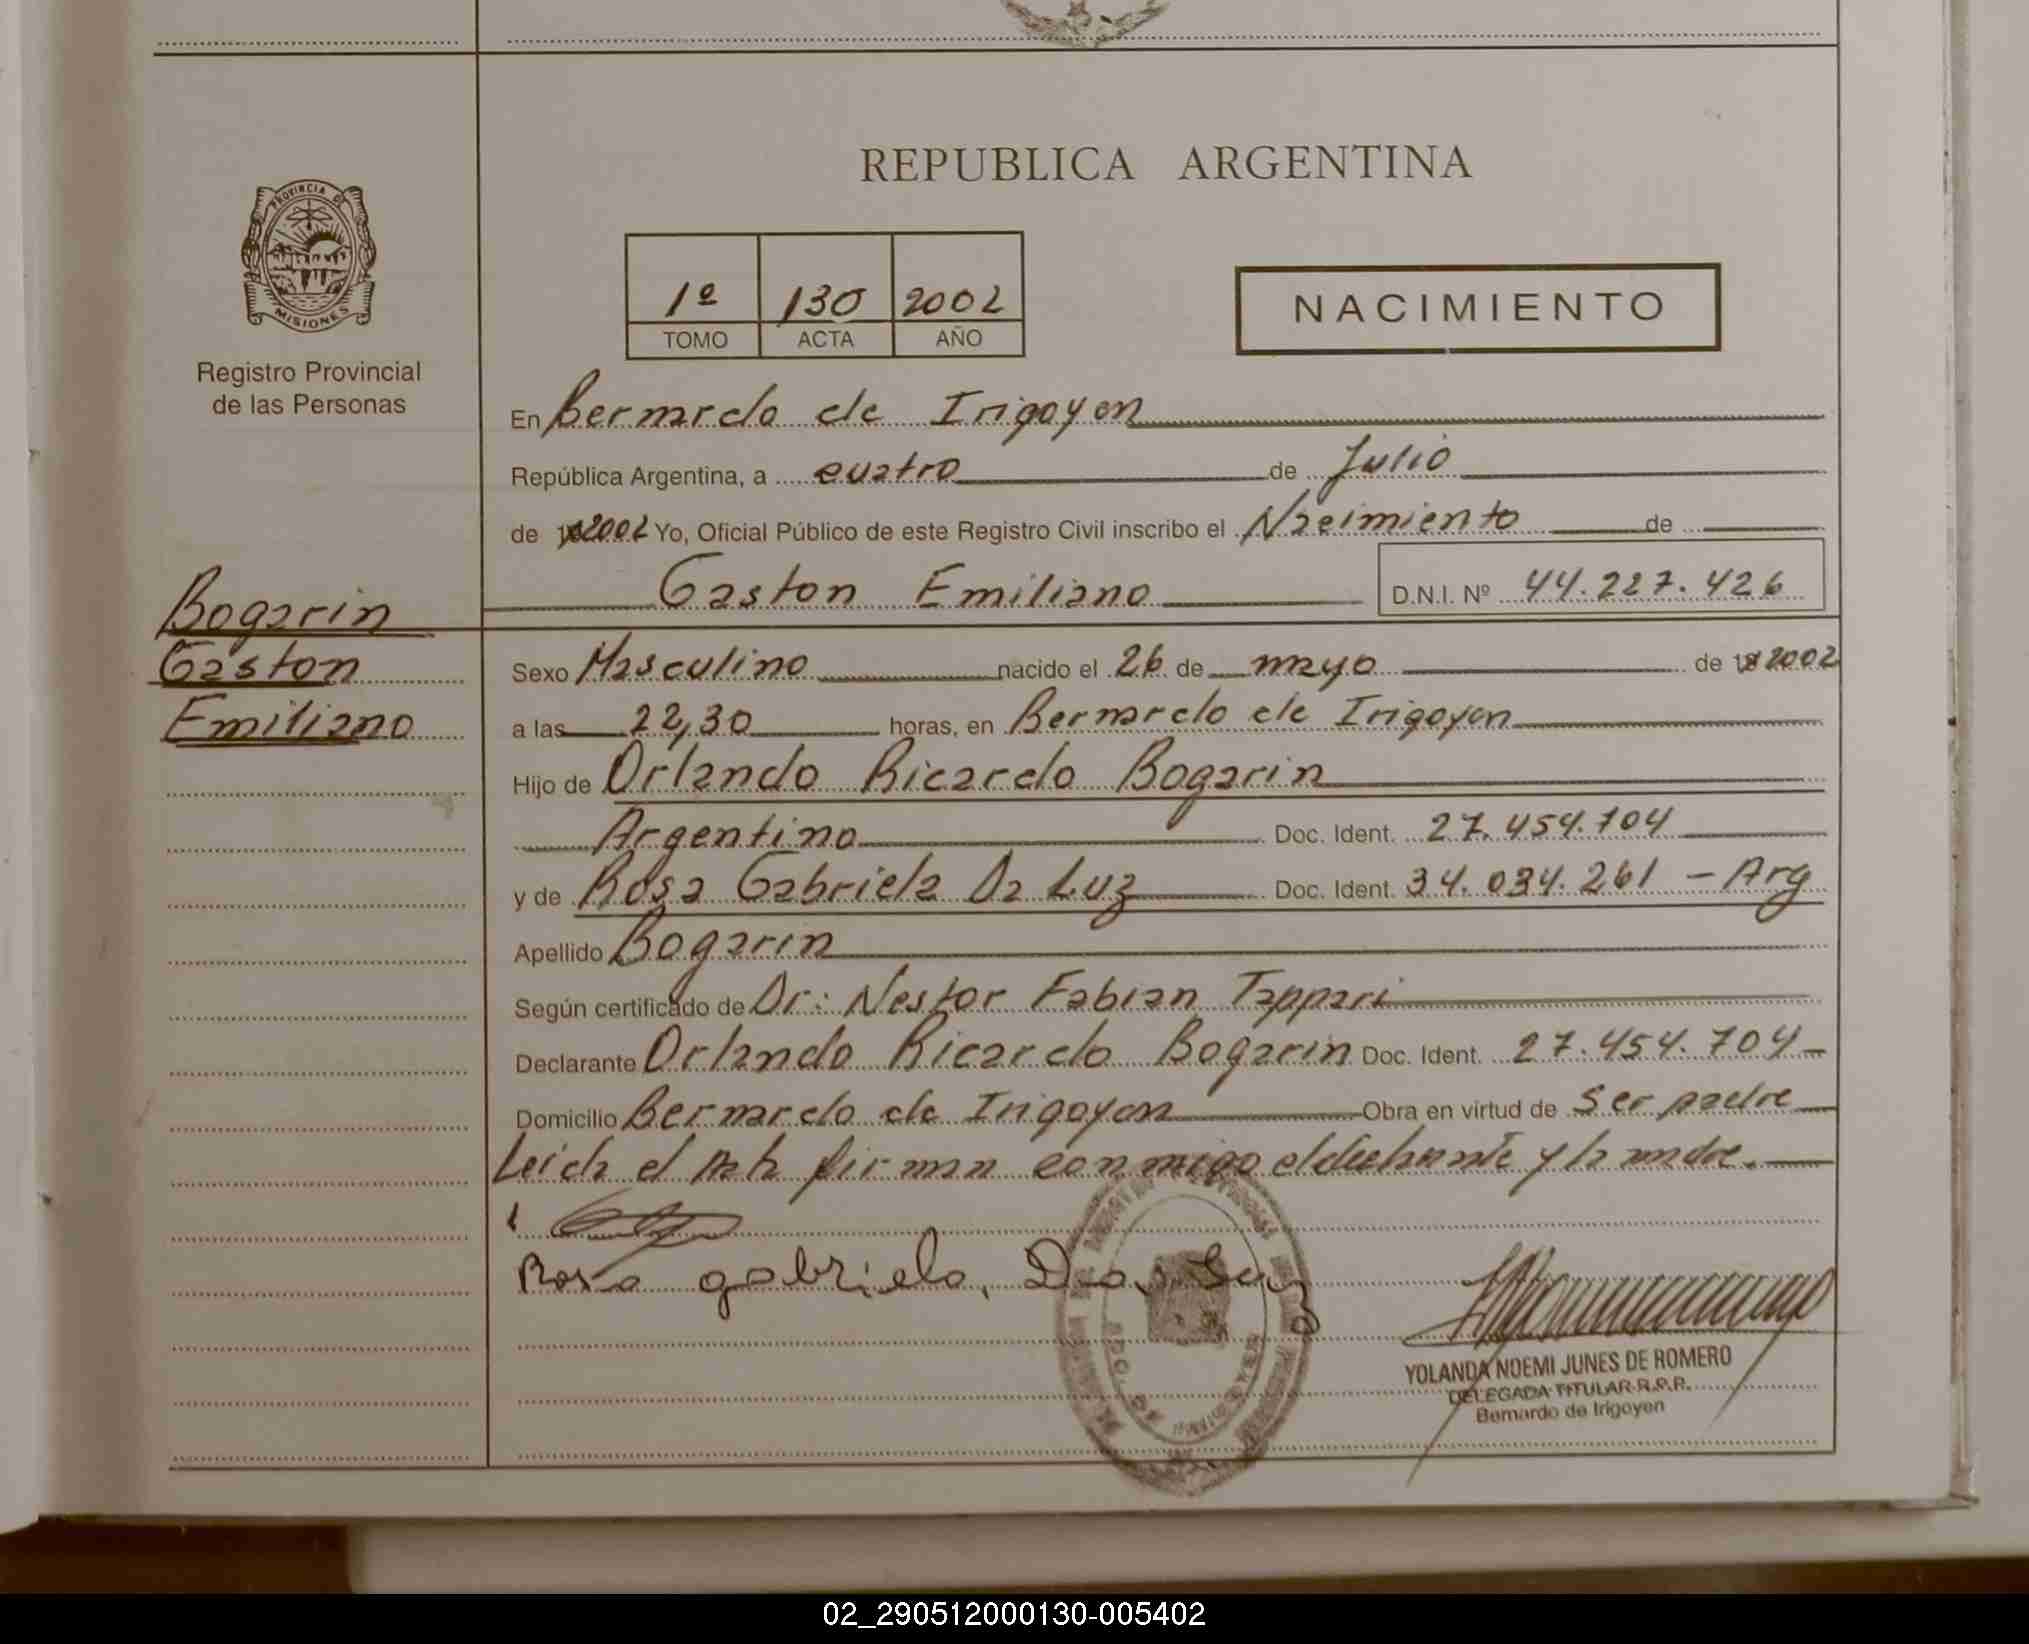 REPUBLICA ARGENTINA
PROVINCIA DE
MISIONES
Registro Provincial
de las Personas
1º 130 2002
TOMO ACTA AÑO
NACIMIENTO
En Bernardo de Irigoyen
República Argentina, a cuatro de Julio
de 2002 Yo, Oficial Público de este Registro Civil inscribo el Nacimiento de
Gaston Emiliano D.N.I. Nº 44.227.426
Bogarin
Gaston
Emiliano
Sexo Masculino nacido el 26 de mayo de 2002
a las 22,30 horas, en Bernardo de Irigoyen
Hijo de Orlando Ricardo Bogarin
Argentino Doc. Ident. 27.454.704
y de Rosa Gabriela Da Luz Doc. Ident. 34.034.261 - Arg
Apellido Bogarin
Según certificado de Dr: Nestor Fabian Tappari
Declarante Orlando Ricardo Bogarin Doc. Ident. 27.454.704
Domicilio Bernardo de Irigoyen Obra en virtud de Ser padre
Leida el Acta firman conmigo el declarante y la madre.
Rosa gabriela, Da Luz
YOLANDA NOEMI JUNES DE ROMERO
DELEGADA TITULAR R.P.P.
Bernardo de Irigoyen
02_290512000130-005402